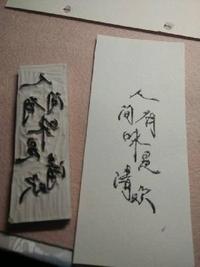 人间
有味是
清欢
人间
有味是
清欢